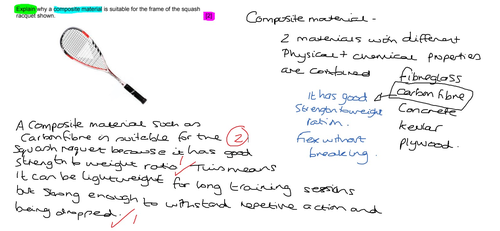 Explain why a composite material is suitable for the frame of the squash
racquet shown.
[2]
Composite material -
2 materials with different
Physical + chemical properties
are combined
fibreglass
carbon fibre
Concrete
kevlar
plywood.
It has good
strength to weight
ration.
Flex without
breaking.
A composite material such as
Carbon fibre is suitable for the
2
squash raquet because it has good
strength to weight ratio. This means
It can be lightweight for long training sessions
but strong enough to withstand repetive action and
being dropped.